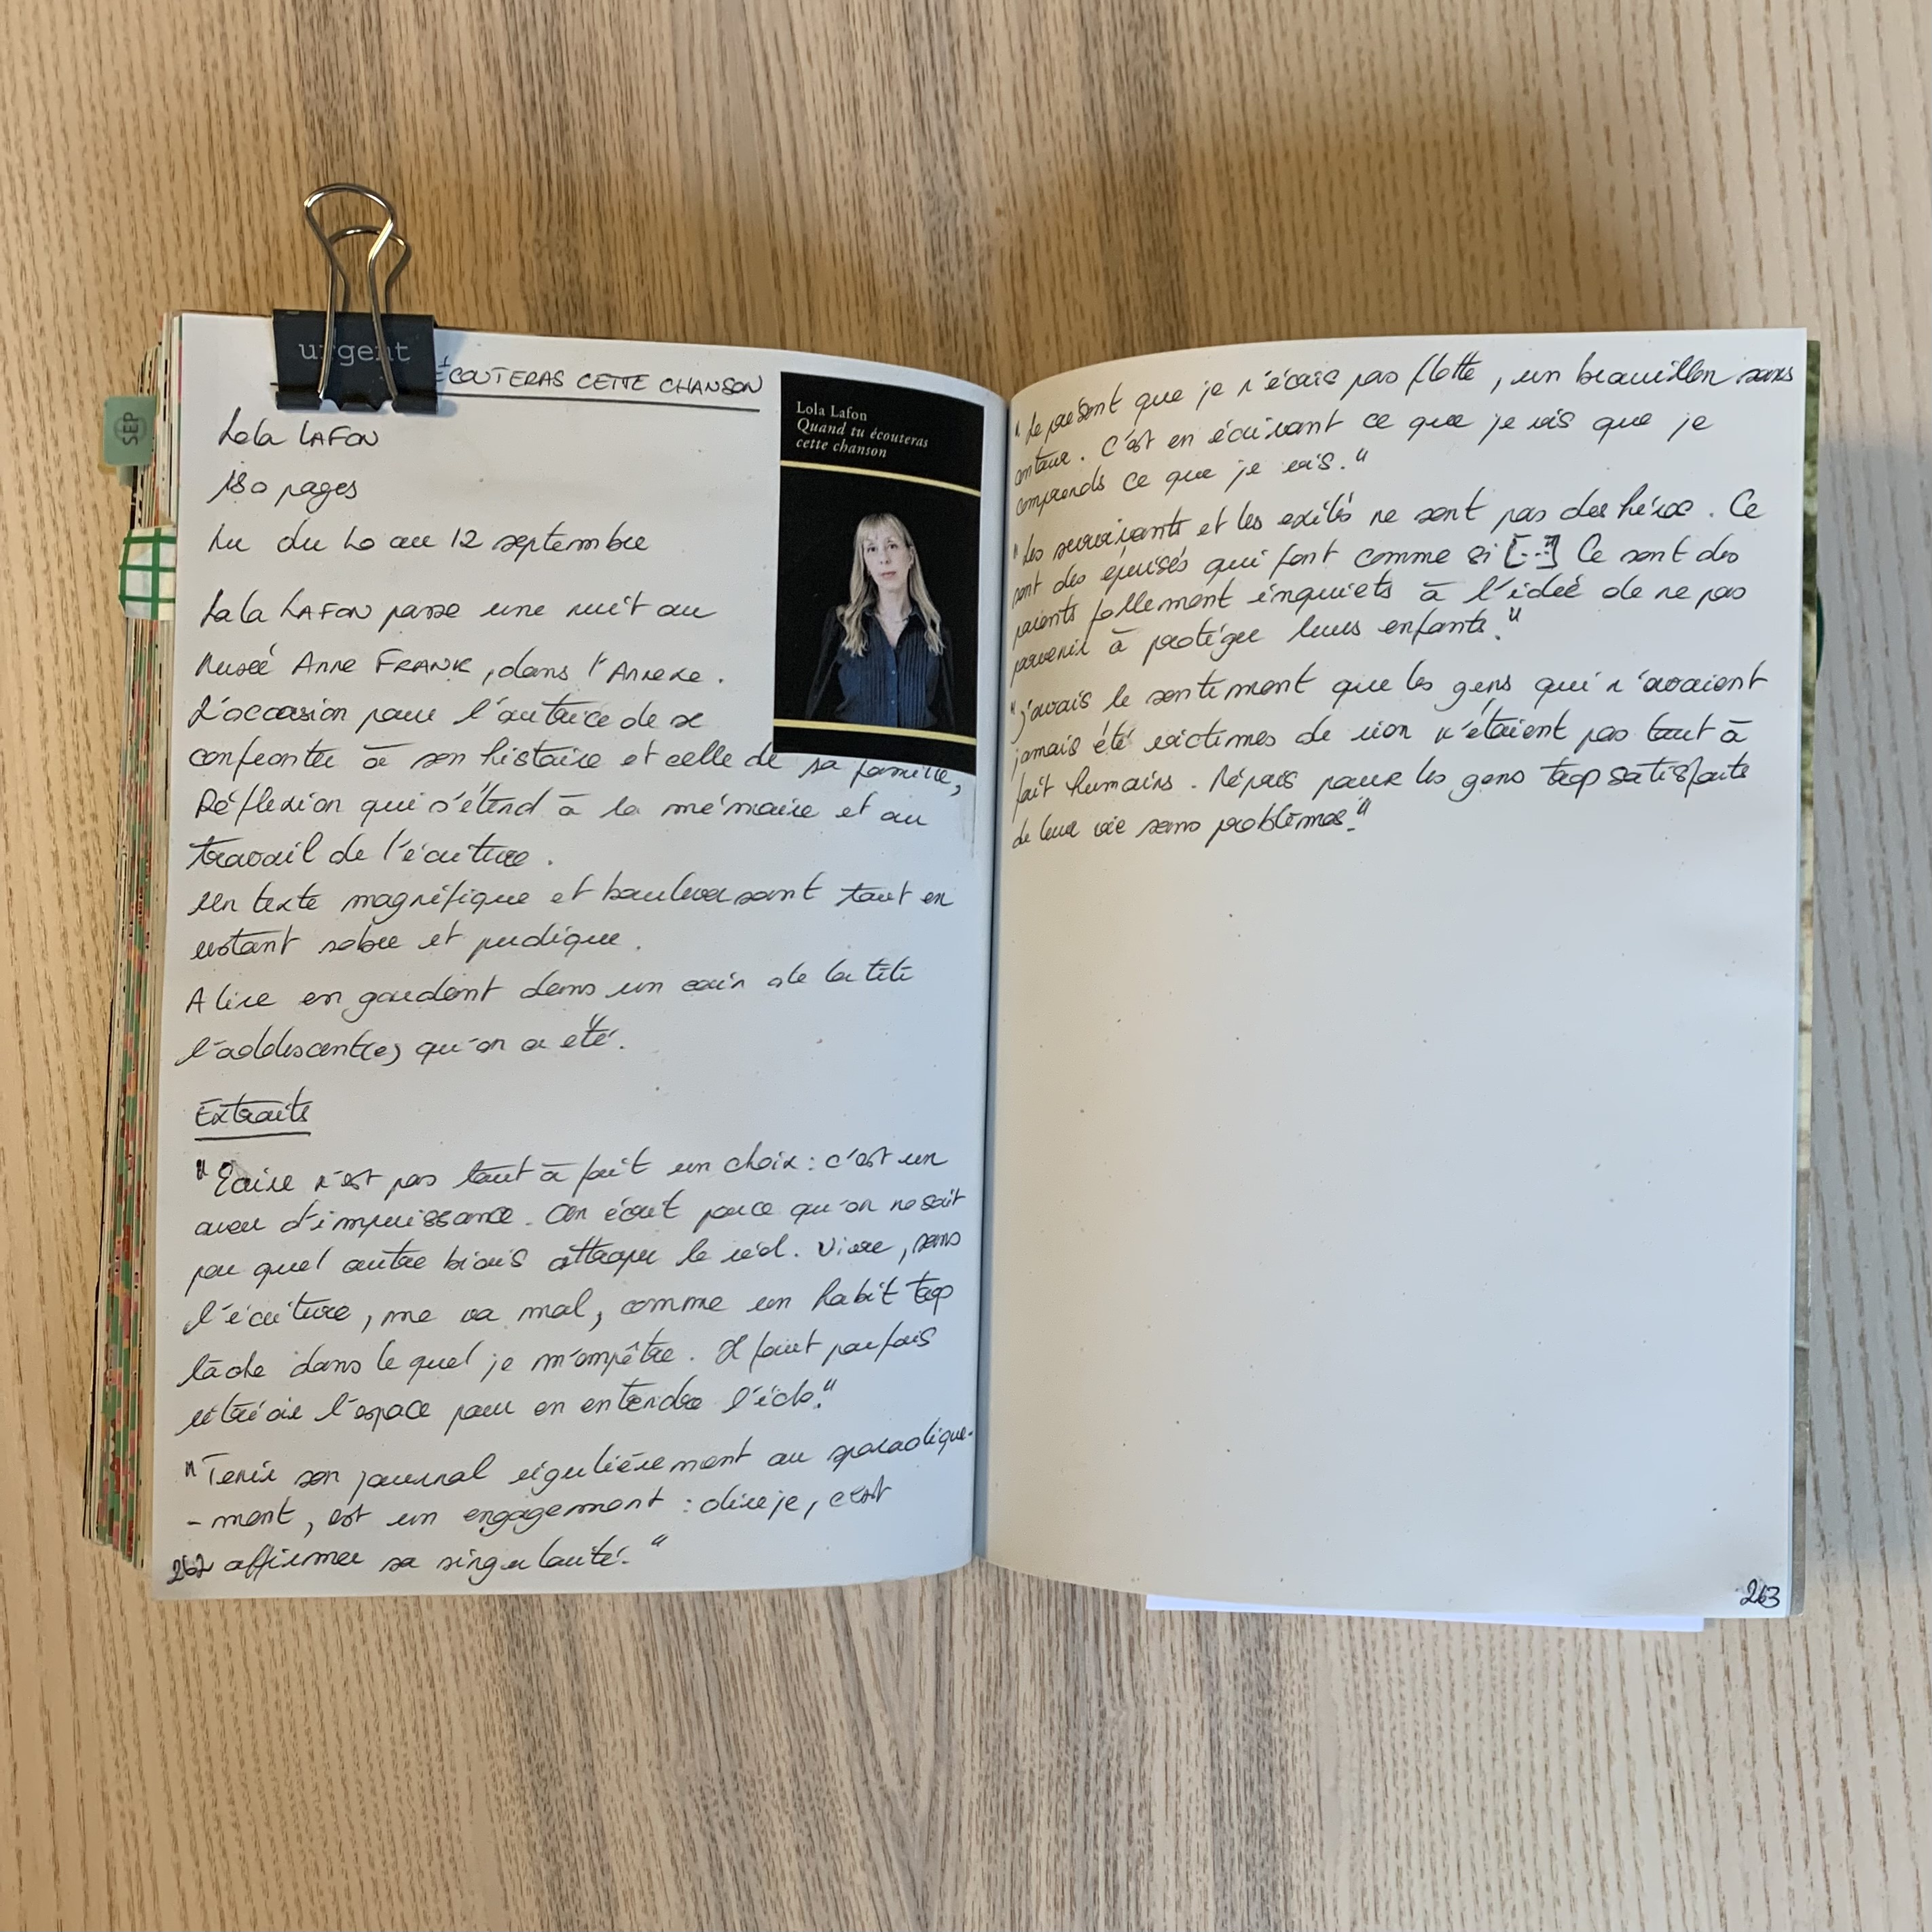 urgent
ÉCOUTERAS CETTE CHANSON
SEP
Lola LAFON
180 pages
Lu du 10 au 12 septembre
Lola LAFON passe une nuit au
Musée Anne FRANK, dans l'Annexe.
L'occasion pour l'autrice de se
confronter à son histoire et celle de sa famille,
Réflexion qui s'étend à la mémoire et au
travail de l'écriture.
Un texte magnifique et bouleversant tout en
restant sobre et pudique.
A lire en gardant dans un coin de la tête
l'adolescent(e) qu'on a été.
Lola Lafon
Quand tu écouteras
cette chanson
Extraits
"Ecrire n'est pas tout à fait un choix : c'est un
aveu d'impuissance. On écrit parce qu'on ne sait
par quel autre biais attraper le réel. Vivre, sans
l'écriture, me va mal, comme un habit trop
lâche dans lequel je m'empêtre. Il faut parfois
rétrécir l'espace pour en entendre l'écho."
"Tenir son journal régulièrement ou sporadique-
-ment, est un engagement : dire je, c'est
affirmer sa singularité."
262
"Le présent que je n'écris pas flotte, un brouillon sans
contour. C'est en écrivant ce que je vis que je
comprends ce que je vis."
"Les survivants et les exilés ne sont pas des héros. Ce
sont des épuisés qui font comme si [...] Ce sont des
parents follement inquiets à l'idée de ne pas
parvenir à protéger leurs enfants."
"J'avais le sentiment que les gens qui n'avaient
jamais été victimes de rien n'étaient pas tout à
fait humains. Mépris pour les gens trop satisfaits
de leur vie sans problèmes."
263